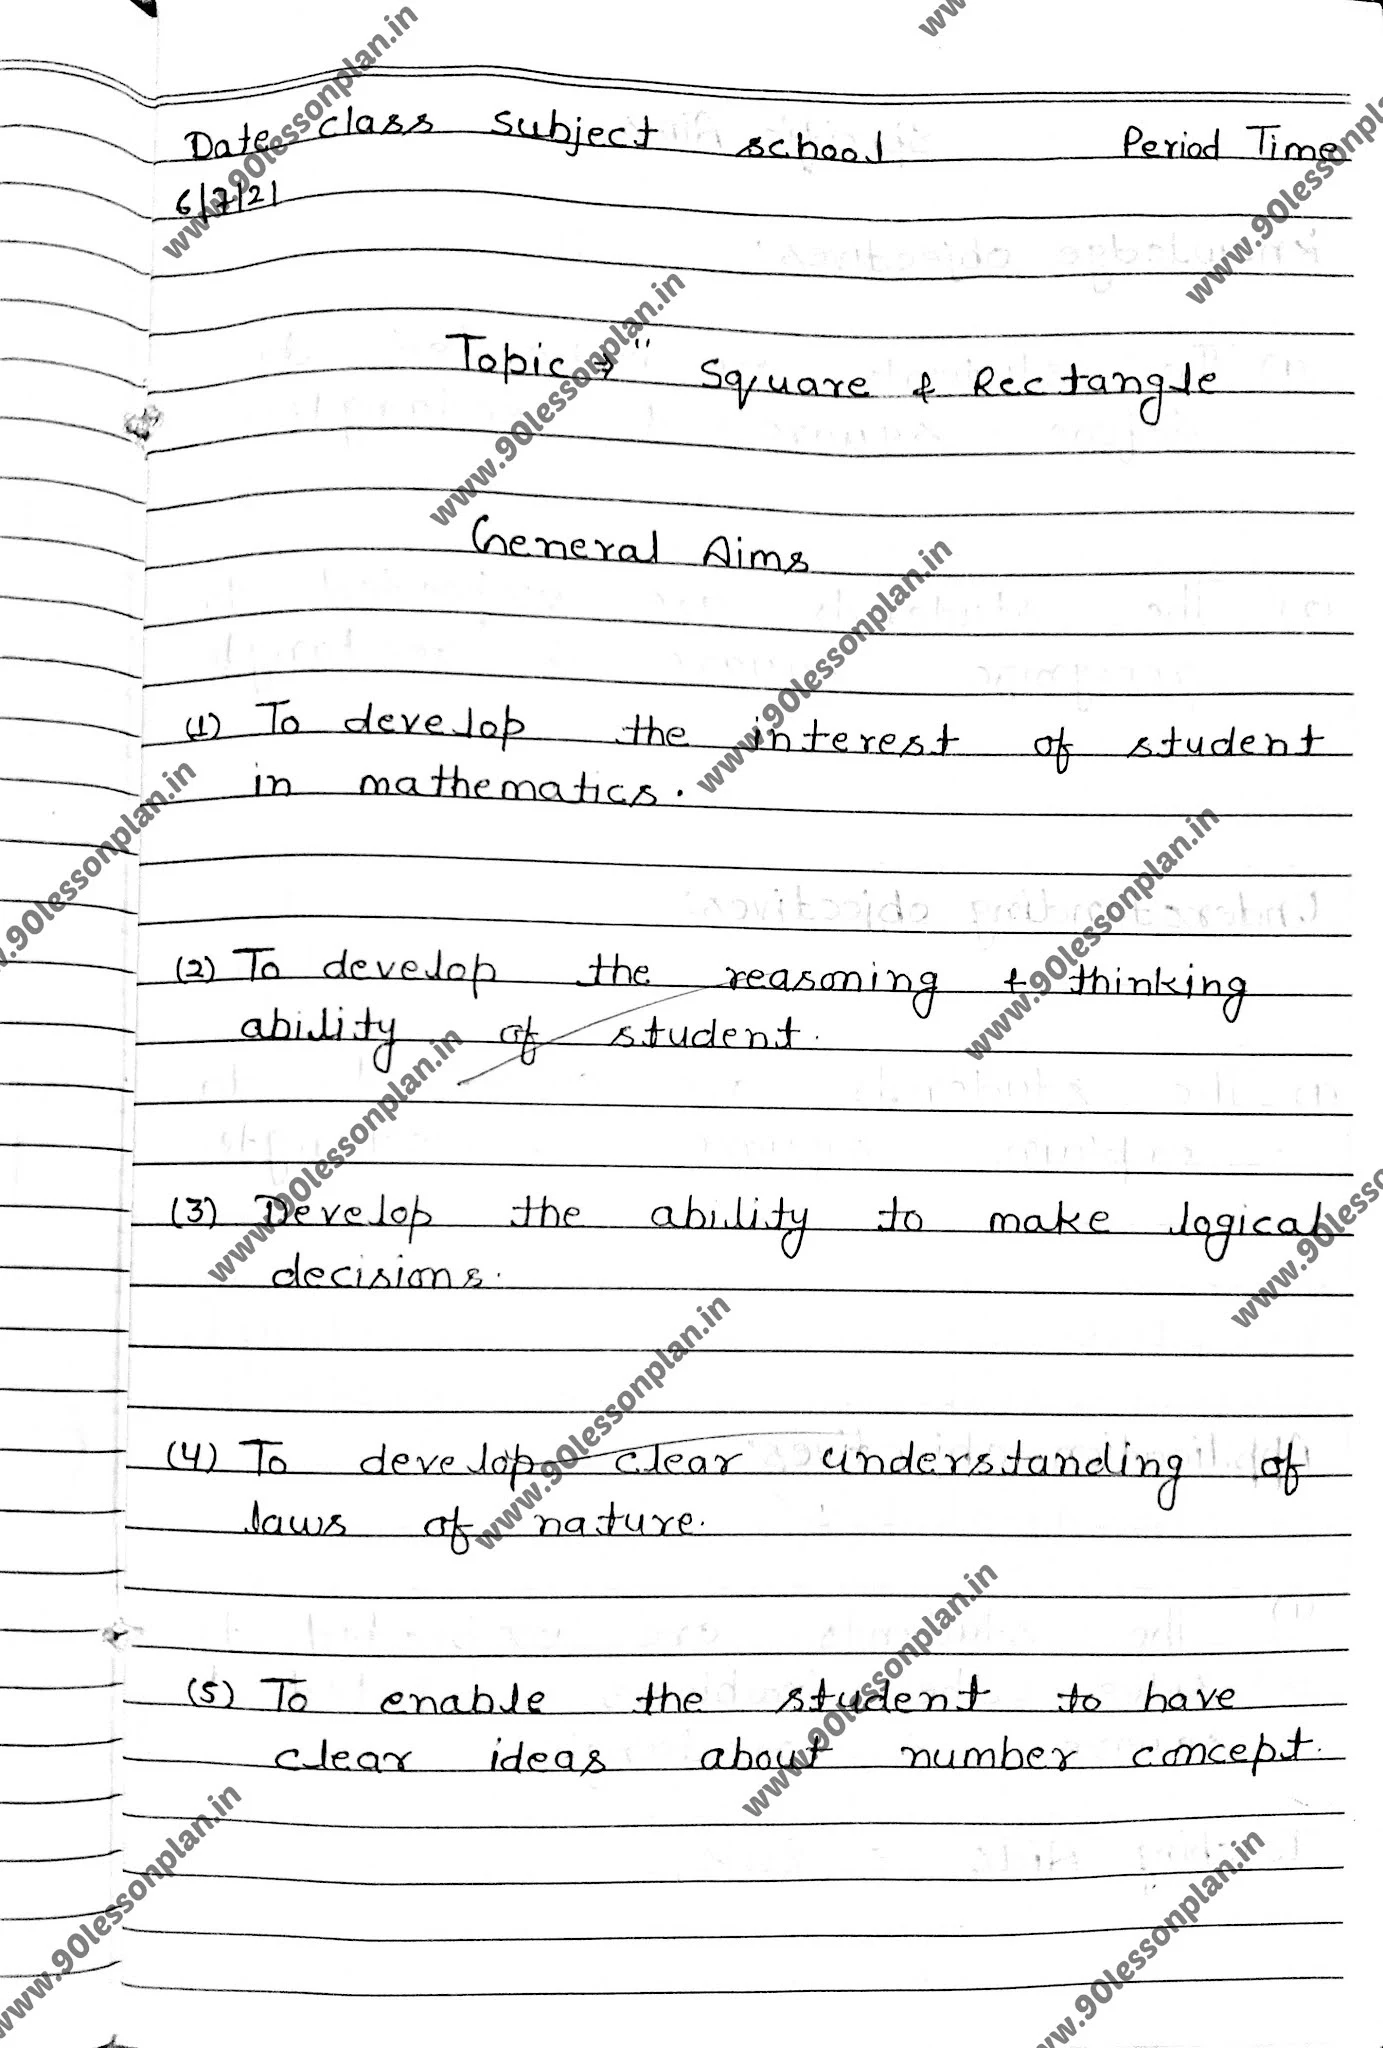 Date class subject school Period Time
6/7/21
Topic → " Square & Rectangle
General Aims
(1) To develop the interest of student
in mathematics.
(2) To develop the reasoning & thinking
ability of student.
(3) Develop the ability to make logical
decisions.
(4) To develop clear understanding of
laws of nature.
(5) To enable the student to have
clear ideas about number concept.
www.90lessonplan.in